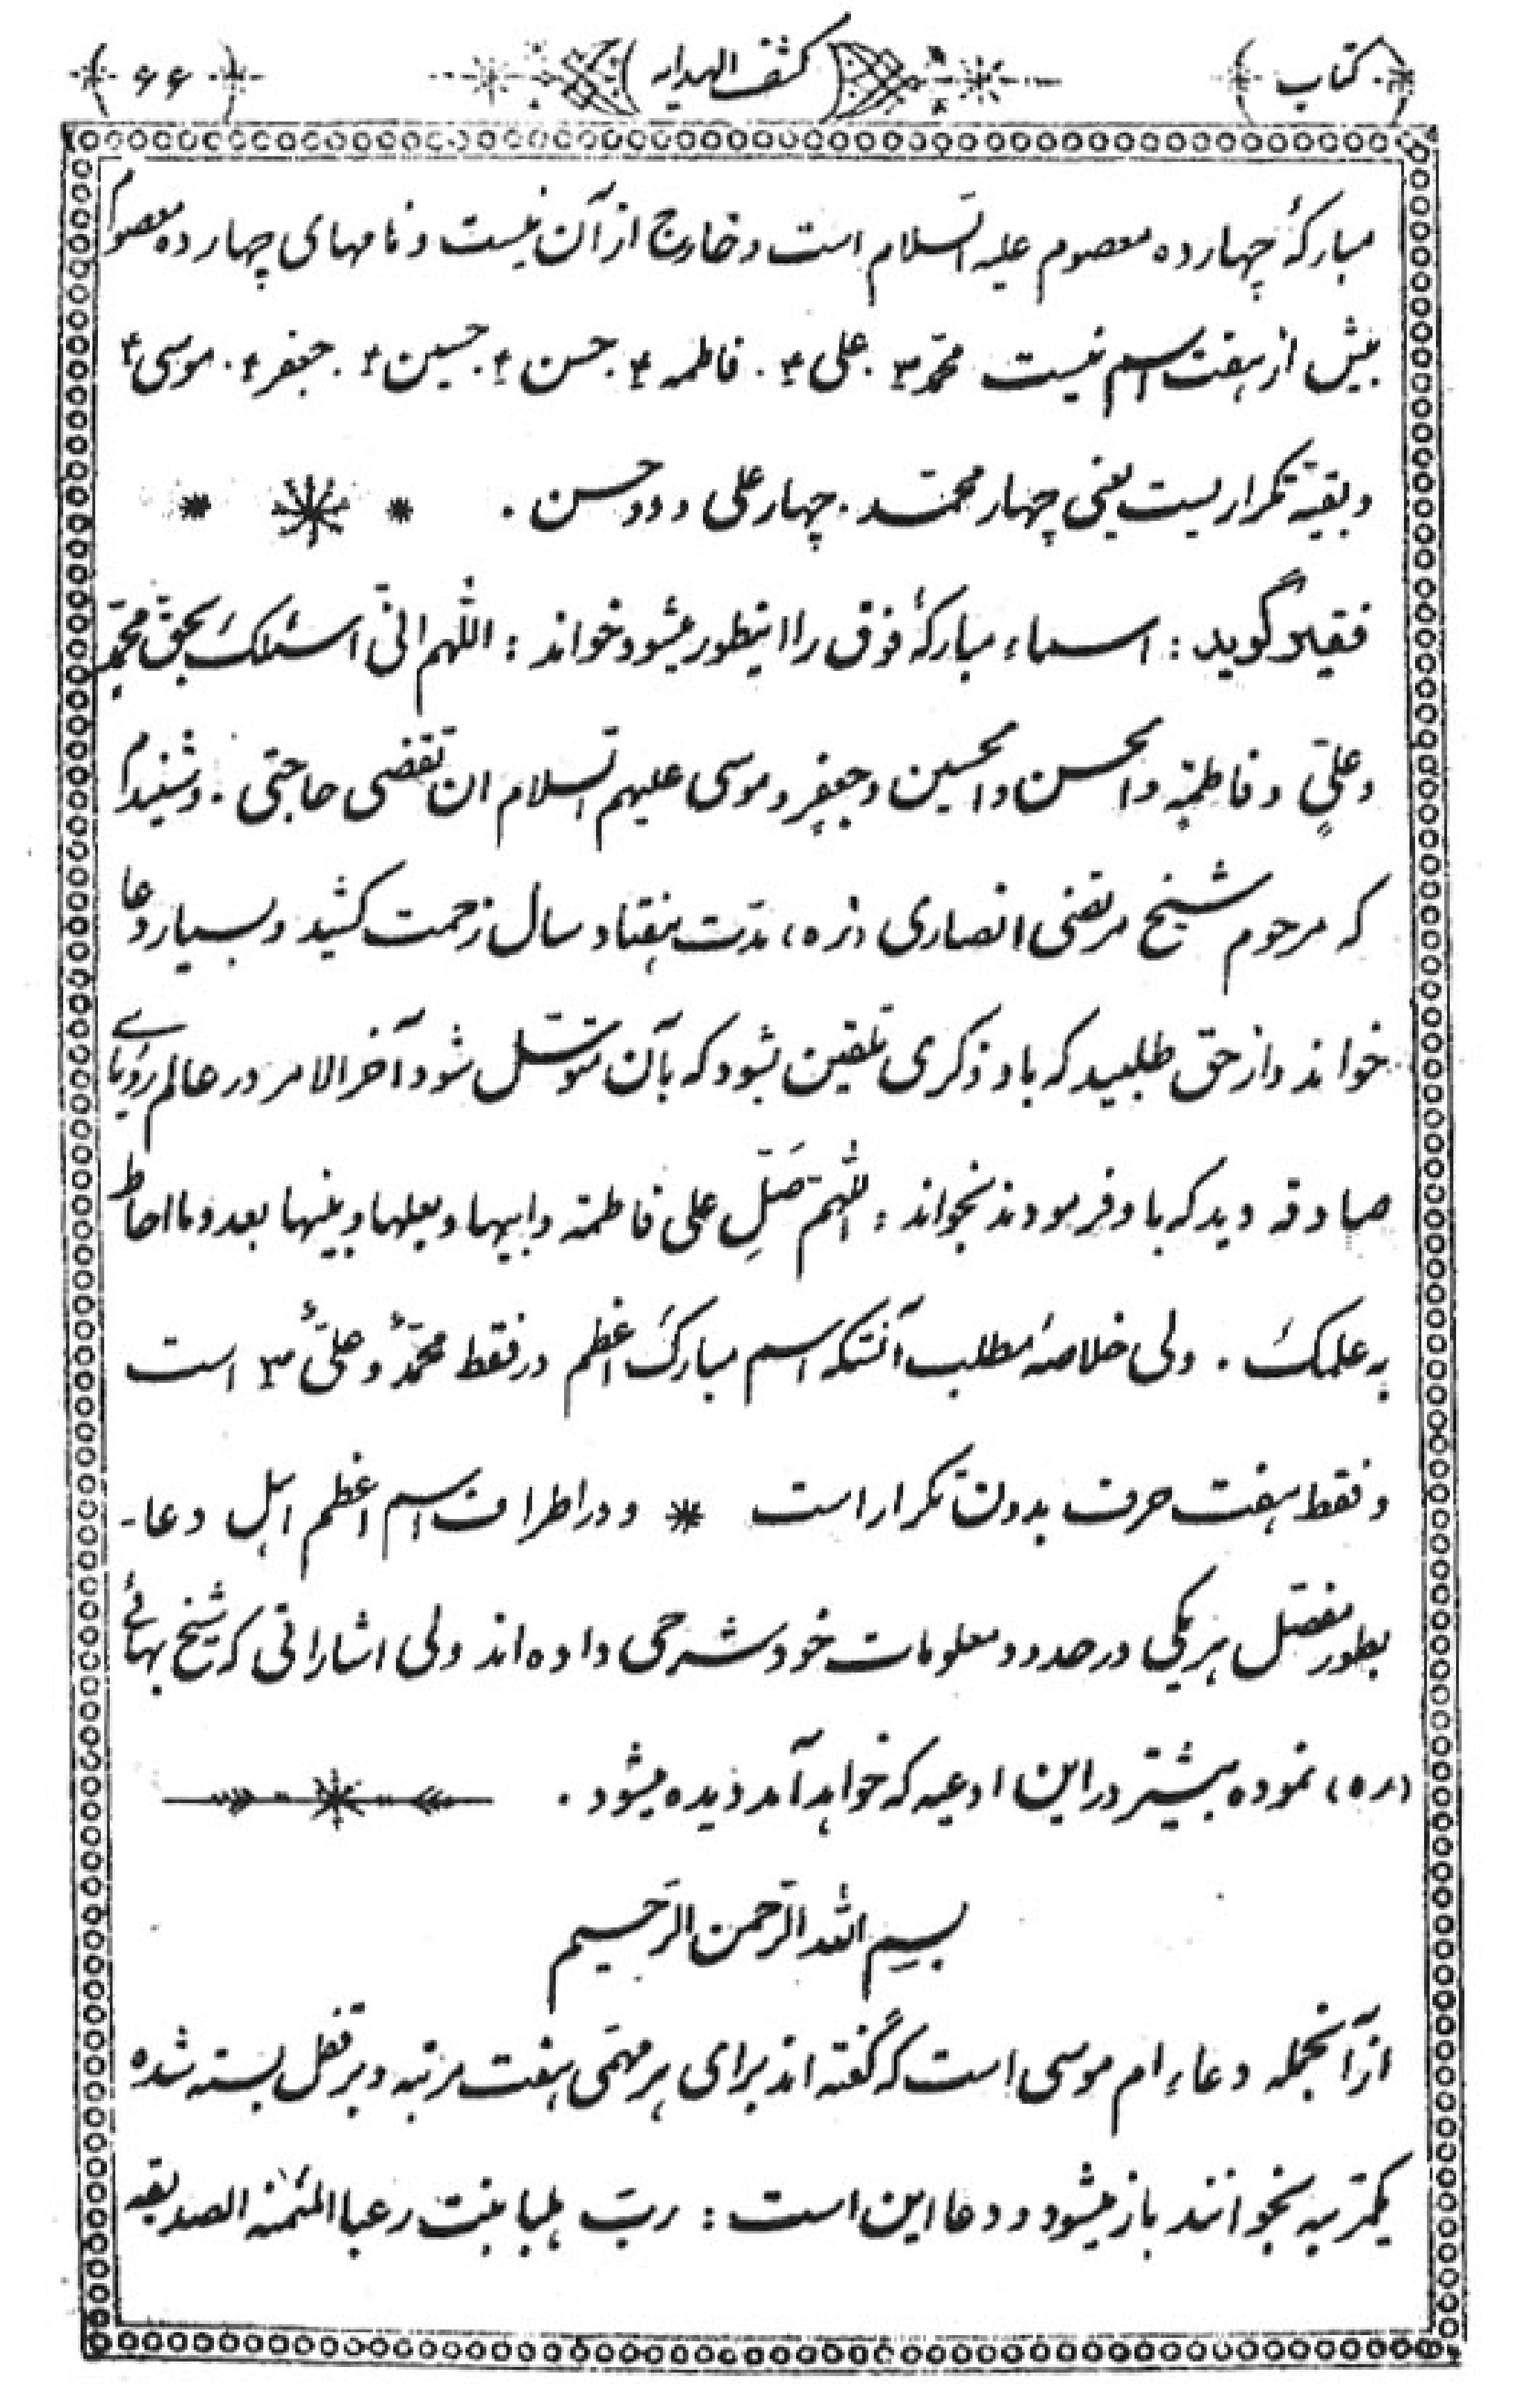 کتاب (کشف الهدایه) ۶۶
مبارکهٔ چهارده معصوم علیه السّلام است و خارج از آن نیست و نامهای چهارده معصوم
بیش از هفت اسم نیست محمّد ص . علی ع . فاطمه ع . حسن ع . حسین ع . جعفر ع . موسی ع
و بقیّه تکراریست یعنی چهار محمّد . چهار علی و دو حسن .
فقیر گوید : اسماء مبارکهٔ فوق را اینطور میشود خواند : اللّهم انّی اسئلک بحقّ محمّدٍ
و علیٍّ و فاطمةٍ و الحسن و الحسین و جعفرٍ و موسی علیهم السّلام ان تقضی حاجتی . و شنیدم
که مرحوم شیخ مرتضی انصاری (ره) مدّت هفتاد سال زحمت کشید و بسیار دعا
خواند و از حق طلبید که باو ذکری تلقین شود که بآن متوسّل شود آخرالامر در عالم رؤیای
صادقه دید که باو فرمودند بخواند : اللّهمّ صَلِّ علی فاطمة و ابیها و بعلها و بنیها بعدد ما احاط
به علمک . ولی خلاصهٔ مطلب آنستکه اسم مبارک اعظم در فقط محمّدٌ و علیٌّ ص است
و فقط هفت حرف بدون تکرار است * و در اطراف اسم اعظم اهل دعا -
بطور مفصّل هر یکی در حدود معلومات خود شرحی داده‌اند ولی اشاراتی که شیخ بهائی
(ره) نموده بیشتر در این ادعیه که خواهد آمد دیده میشود .
بسم الله الرّحمن الرّحیم
از آنجمله دعاء ام موسی است که گفته اند برای هر مهمّی هفت مرتبه و بر قفل بسته شده
یکمرتبه بخوانند باز میشود و دعا این است : ربّ بنت الصدیقه